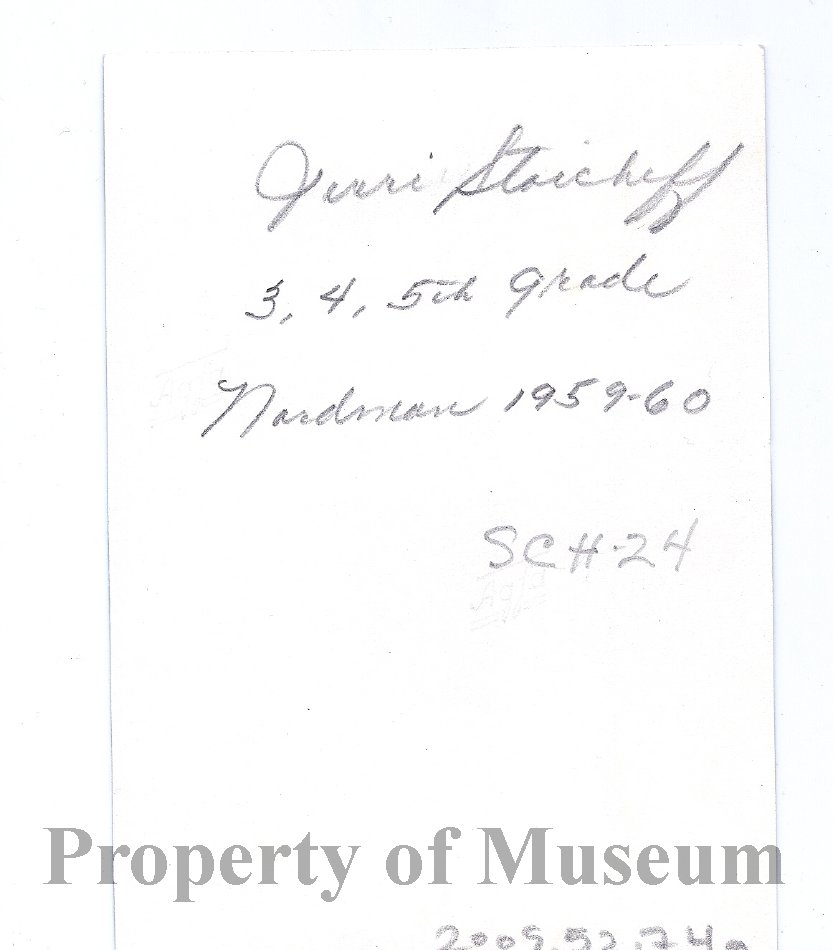 Jerri Stoicheff
3, 4, 5th grade
Nordman 1959-60
SCH-24
Agfa
Property of Museum